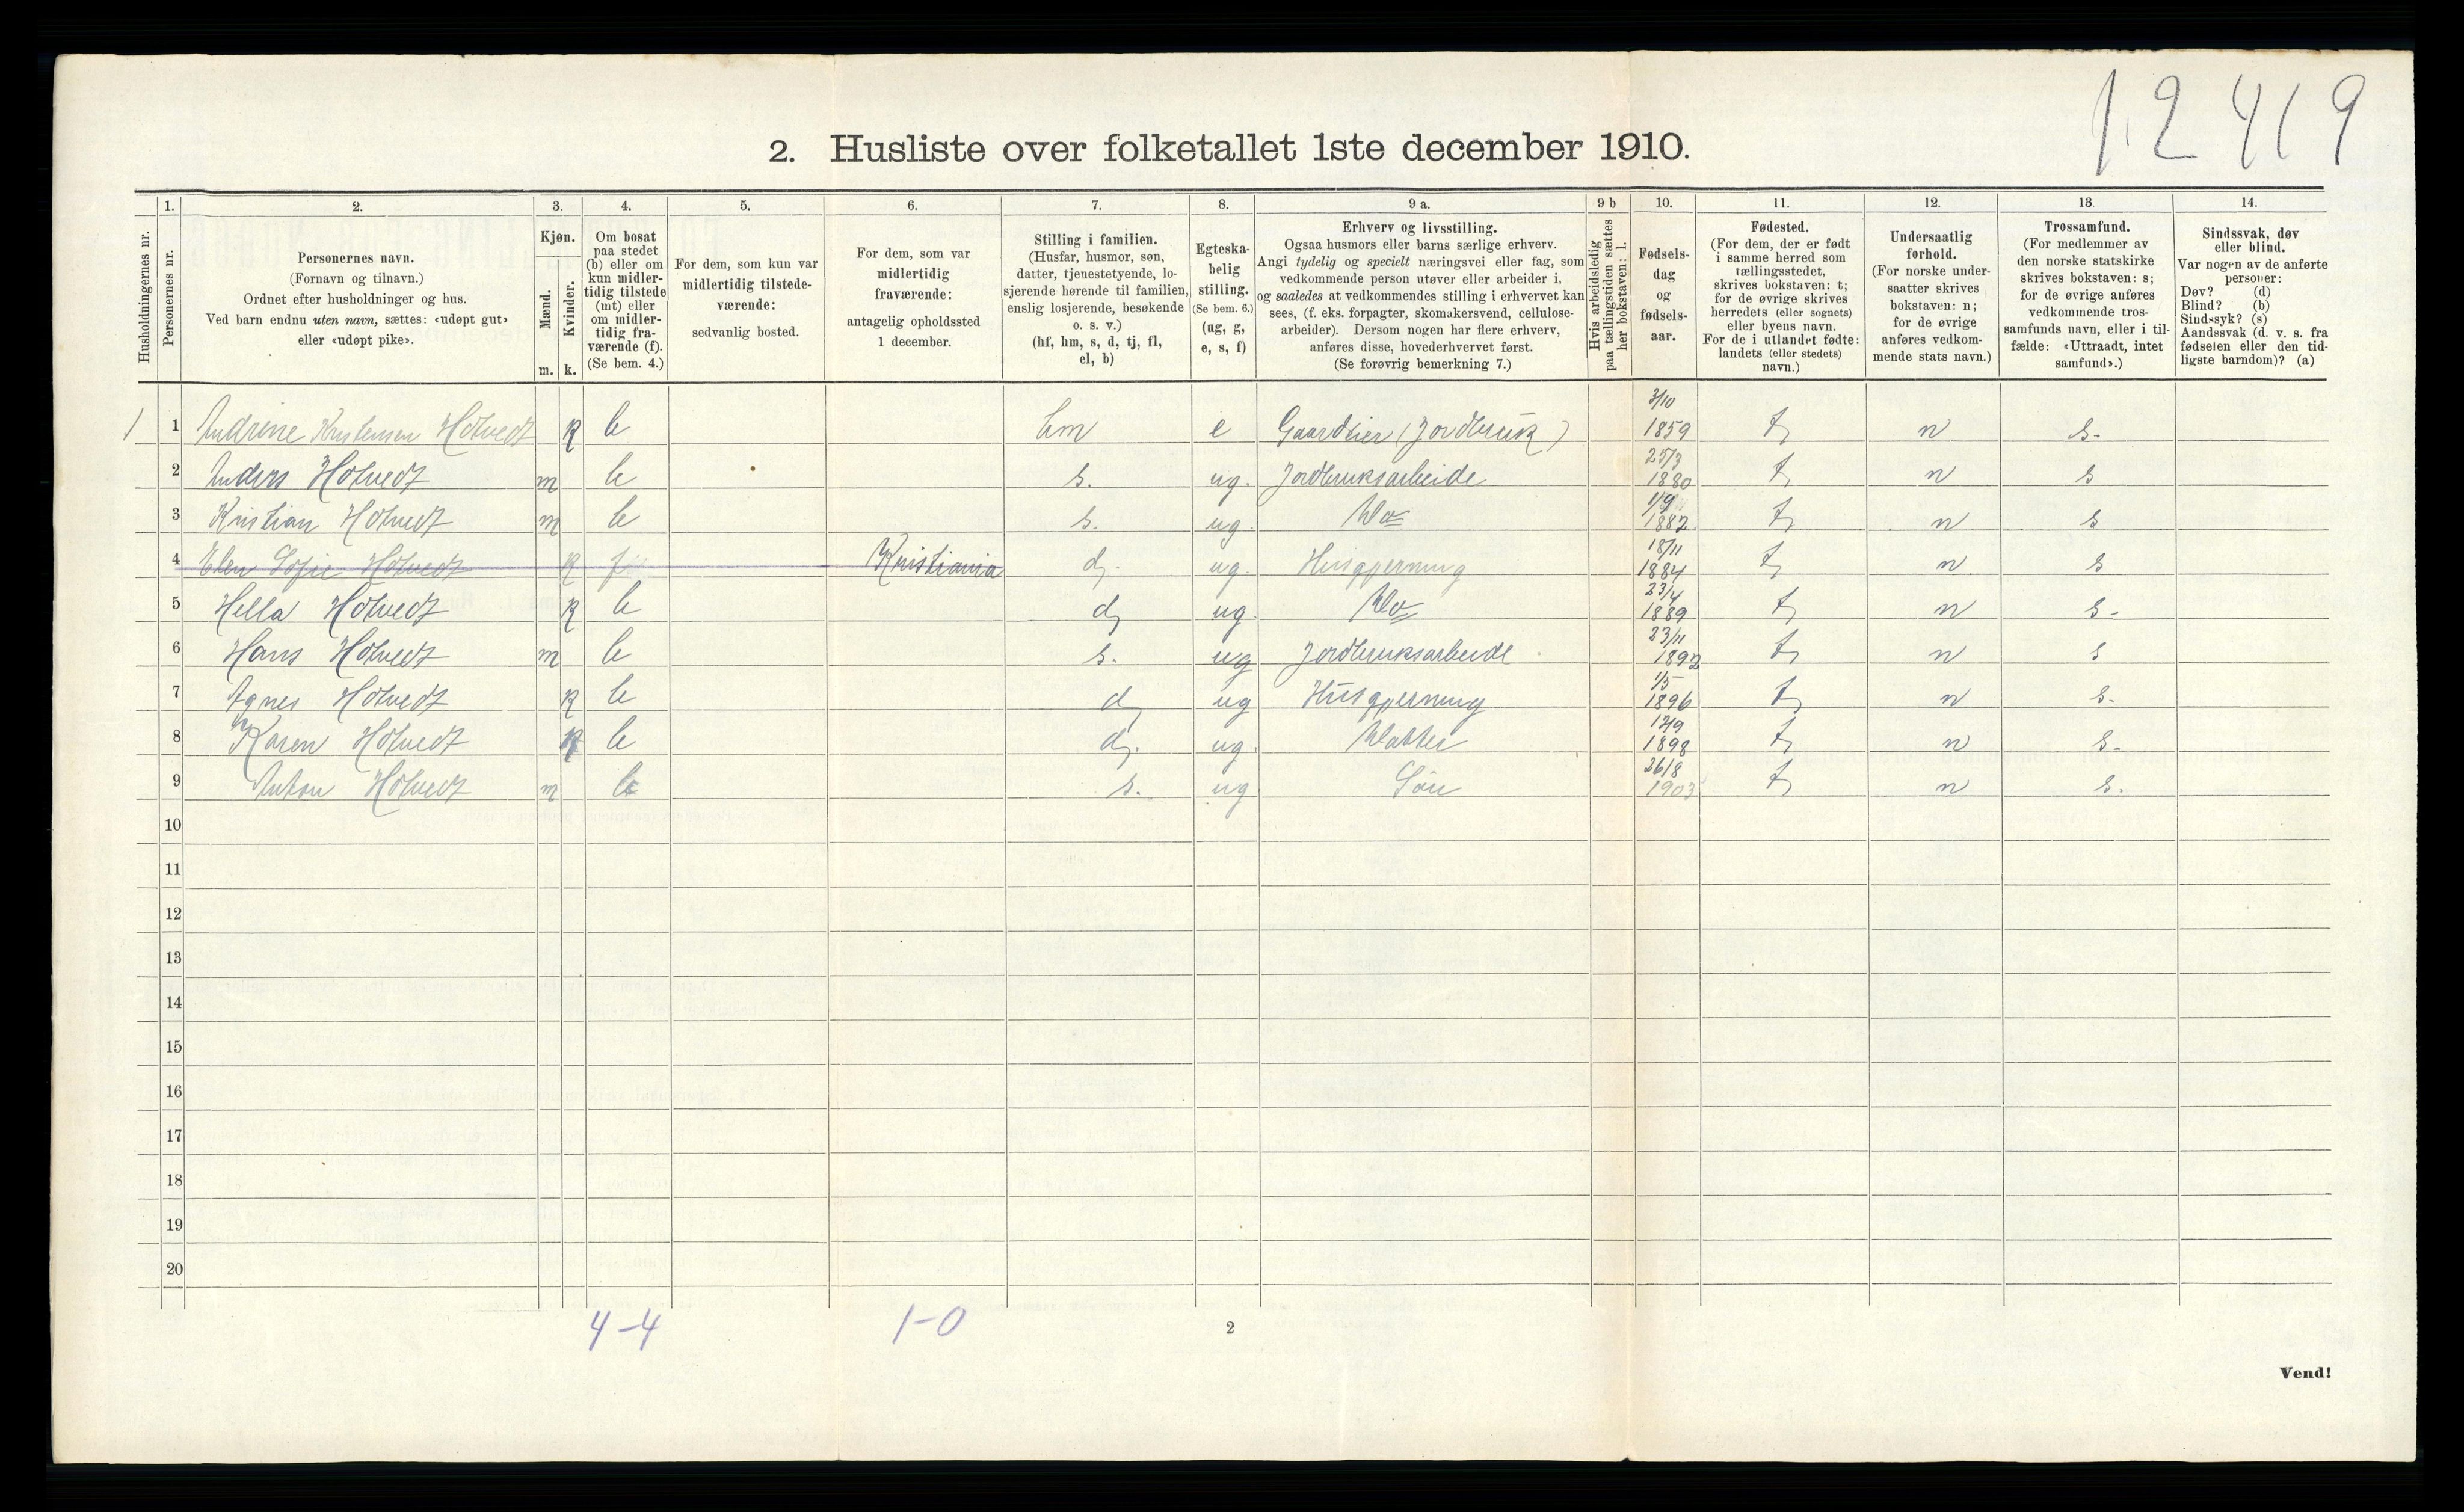 1 2 419
2. Husliste over folketallet 1ste december 1910.
Husholdningernes nr.
1.
Personernes nr.
2.
Personernes navn.
(Fornavn og tilnavn.)
Ordnet efter husholdninger og hus.
Ved barn endnu uten navn, sættes: «udøpt gut»
eller «udøpt pike».
3.
Kjøn.
Mænd.
Kvinder.
m. k.
4.
Om bosat
paa stedet
(b) eller om
kun midler-
tidig tilstede
(mt) eller
om midler-
tidig fra-
værende (f).
(Se bem. 4.)
5.
For dem, som kun var
midlertidig tilstede-
værende:
sedvanlig bosted.
6.
For dem, som var
midlertidig
fraværende:
antagelig opholdssted
1 december.
7.
Stilling i familien.
(Husfar, husmor, søn,
datter, tjenestetyende, lo-
sjerende hørende til familien,
enslig losjerende, besøkende
o. s. v.)
(hf, hm, s, d, tj, fl,
el, b)
8.
Egteska-
belig
stilling.
(Se bem. 6.)
(ug, g,
e, s, f)
9 a.
Erhverv og livsstilling.
Ogsaa husmors eller barns særlige erhverv.
Angi tydelig og specielt næringsvei eller fag, som
vedkommende person utøver eller arbeider i,
og saaledes at vedkommendes stilling i erhvervet kan
sees, (f. eks. forpagter, skomakersvend, cellulose-
arbeider). Dersom nogen har flere erhverv,
anføres disse, hovederhvervet først.
(Se forøvrig bemerkning 7.)
9 b
Hvis arbeidsledig
paa tællingstiden sættes
her bokstaven: l.
10.
Fødsels-
dag
og
fødsels-
aar.
11.
Fødested.
(For dem, der er født
i samme herred som
tællingsstedet,
skrives bokstaven: t;
for de øvrige skrives
herredets (eller sognets)
eller byens navn.
For de i utlandet fødte:
landets (eller stedets)
navn.)
12.
Undersaatlig
forhold.
(For norske under-
saatter skrives
bokstaven: n;
for de øvrige
anføres vedkom-
mende stats navn.)
13.
Trossamfund.
(For medlemmer av
den norske statskirke
skrives bokstaven: s;
for de øvrige anføres
vedkommende tros-
samfunds navn, eller i til-
fælde: «Uttraadt, intet
samfund».)
14.
Sindssvak, døv
eller blind.
Var nogen av de anførte
personer:
Døv? (d)
Blind? (b)
Sindssyk? (s)
Aandssvak (d. v. s. fra
fødselen eller den tid-
ligste barndom)? (a)
1 1 Andrine Kristensen Holtvedt k b hm e Gaardbier (Jordbruk) 3/10 1859 t n s.
2 Anders Holtvedt m b s. ug. Jordbruksarbeide 25/3 1880 t n s
3 Kristian Holtvedt m b s. ug. Do 1/9 1882 t n s
4 Elen Sofie Holtvedt k f Kristiania d. ug. Husgjerning 18/11 1884 t n s
5 Hella Holtvedt k b d ug. Do 23/4 1889 t n s.
6 Hans Holtvedt m b s. ug Jordbruksarbeide 23/11 1892 t n s
7 Agnes Holtvedt k b d ug Husgjerning 1/5 1896 t n s.
8 Karen Holtvedt k b d. ug. Datter 12/9 1898 t n s.
9 Anton Holtvedt m b s. ug Søn 26/8 1903 t n s.
10
11
12
13
14
15
16
17
18
19
20
4-4 1-0
2
Vend!